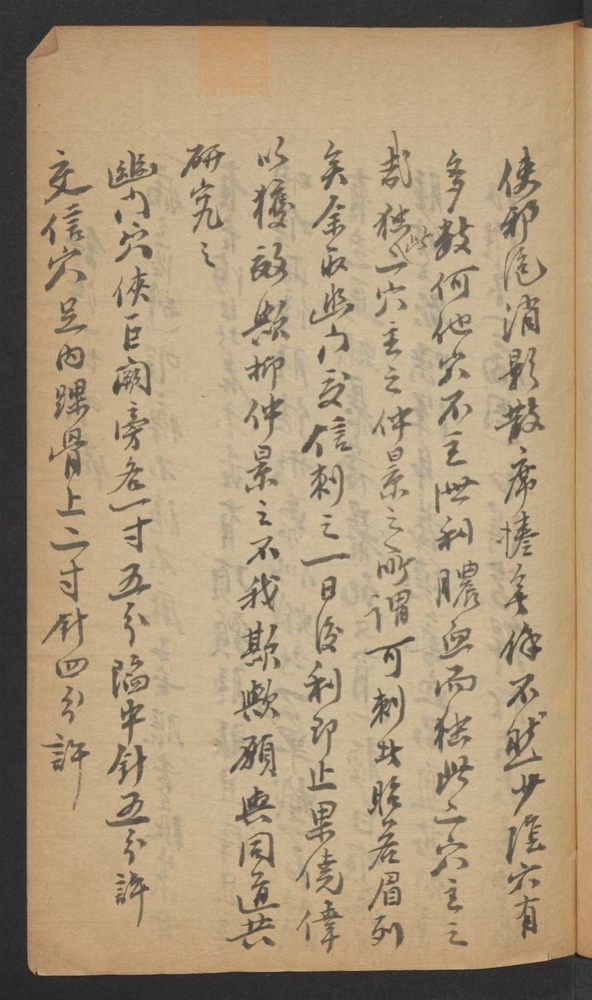 使邪消影散席捲無餘不然少陰穴有
多數何他穴不主泄利膿血而独此二穴主之
哉独此二穴主之仲景之所謂可刺昭若眉列
矣余取幽門交信刺之一日後利即止果僥倖
以獲效歟抑仲景之不我欺歟願與同道共
研究之
幽門穴俠巨闕旁各一寸五分陷中針五分許
交信穴足内踝骨上二寸針四分許